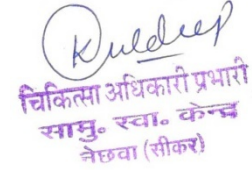 Kuldeep
चिकित्सा अधिकारी प्रभारी
सामु. स्वा. केन्द्र
नेछवा (सीकर)